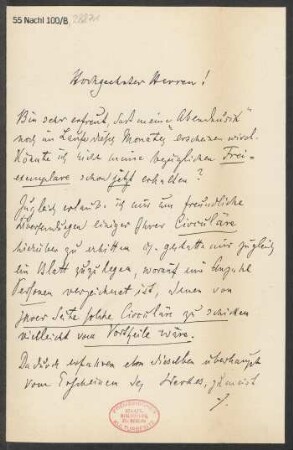 55 Nachl 100/B,
Hochgeehrter Herren!
Bin sehr erfreut, daß meine „Abendmusik"
noch im Laufe dieses Monates erscheinen wird.
Könnte ich nicht meine bezüglichen Frei-
exemplare schon jetzt erhalten?
Zugleich erlaube ich mir um freundliche
Übersendung einiger Ihrer Circuläre
hierüber zu erbitten u. gestatte mir zugleich
ein Blatt zuzulegen, worauf eine Anzahl
Personen verzeichnet ist, denen von
Ihrer Seite solche Circuläre zu schicken
vielleicht von Vortheile wäre.
Dadurch erfahren eben dieselben überhaupt
vom Erscheinen des Werkes,